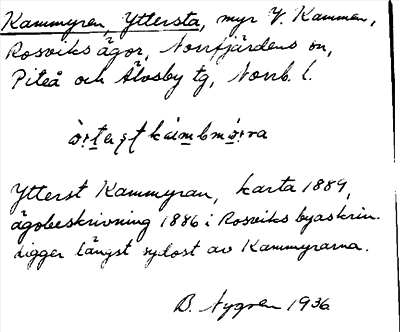 Kammyren, Yttersta, myr V. Kammen,
Rosviks ägor, Norrfjärdens sn,
Piteå och Älvsby tg, Norrb. l.
Ytterst Kammyran, karta 1889,
ägobeskrivning 1886 i Rosviks byaskrin.
Ligger längst sydost av Kammyrarna.
B. Nygren 1936